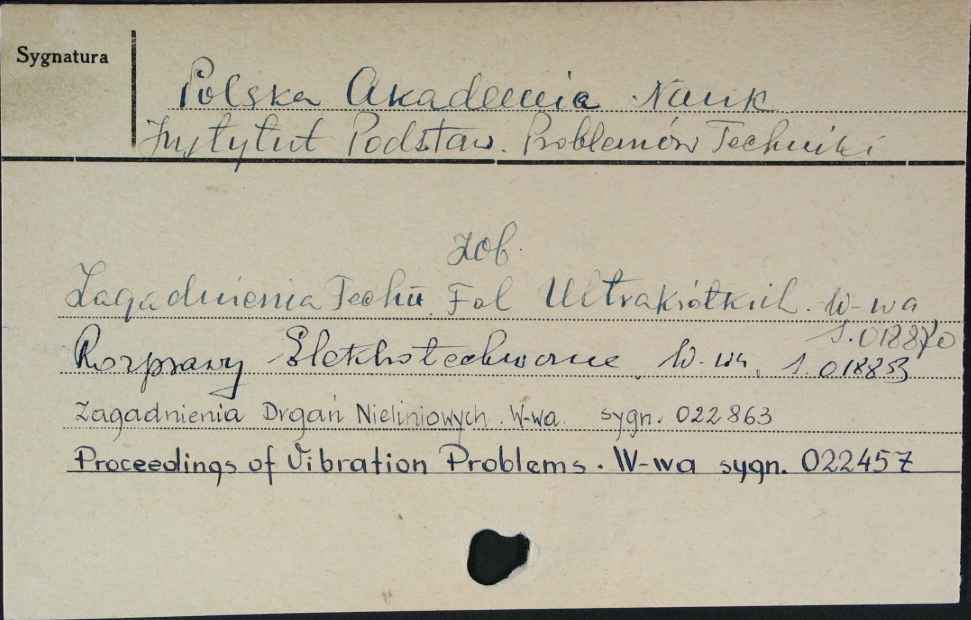 Sygnatura
Polska Akademia Nauk
Instytut Podstaw. Problemów Techniki
zob.
Zagadnienia Techn. Fal Ultrakrótkich. W-wa
S. 018870
Rozprawy Elektrotechniczne, W-wa, S. 018853
Zagadnienia Drgań Nieliniowych. W-wa. sygn. 022863
Proceedings of Vibration Problems. W-wa sygn. 022457